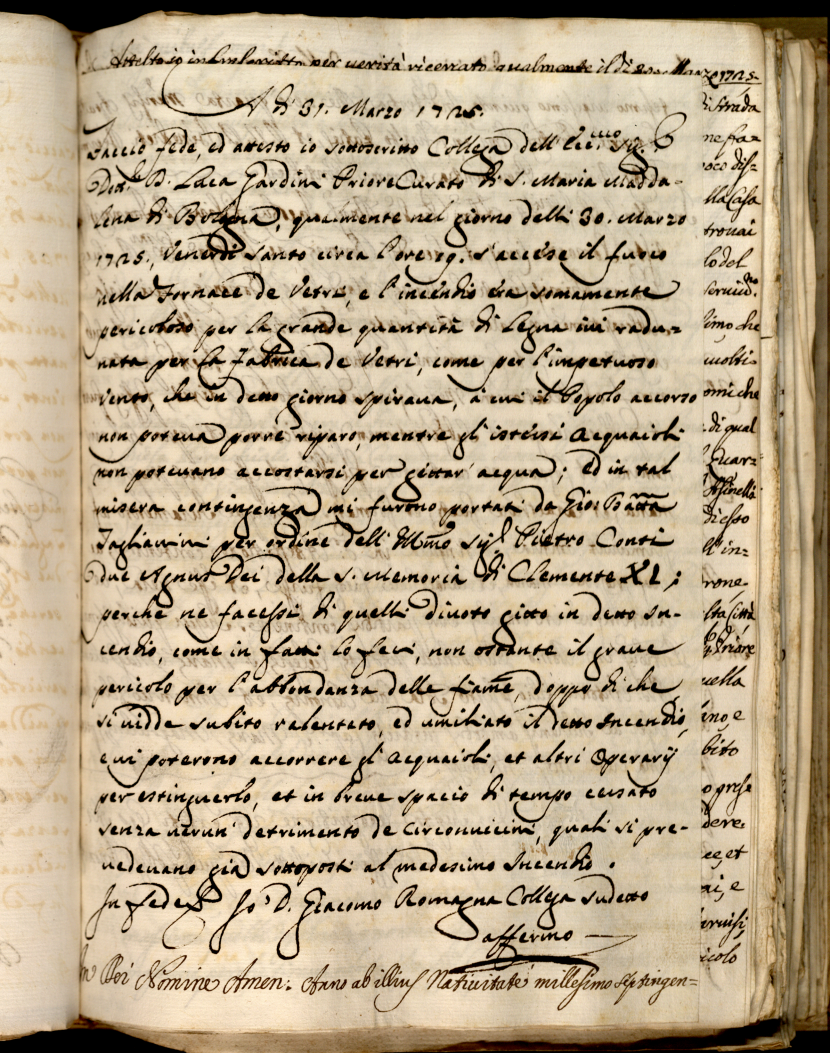 Attesto io infrascritto per verità ricercato qualmente il dì 30 Marzo 1725.
A dì 31. Marzo 1725.
Faccio fede, ed attesto io sottoscritto Collega dell' Ecc.mo Sig.
Dott. D. Luca Gardini Priore Curato di S. Maria Madda-
lena di Bologna, qualmente nel giorno delli 30. Marzo
1725., Venerdì Santo circa l'ore 19. s'accese il fuoco
nella Fornace de Vetri, e l'incendio era somamente
pericoloso per la grande quantità di Legna ivi radu=
nata per la Fabrica de Vetri, come per l'impetuoso
vento, che in detto giorno spiraua, à cui il Popolo accorso
non poteua porre riparo, mentre gl' istessi Acquaioli
non poteuano accostarsi per gittar acqua; ed in tal
misera contingenza mi furono portati da Gio: Batta
Tagliauini per ordine dell' Illmo Sig.r Pietro Conti
due Agnus Dei della S. Memoria di Clemente XI;
perche ne facessi di quelli diuoto gitto in detto In-
cendio, come in fatti lo feci, non ostante il graue
pericolo per l'abbondanza delle fiame, doppo di che
si uidde subito ralentato, ed umiliato il detto Incendio,
e ui poterono accorrere gl' Acquaioli, et altri Operarij
per estinguerlo, et in breue spacio di tempo cessato
senza uerun detrimento de circonuicini, quali si pre-
uedeuano già sottoposti al medesimo Incendio.
In fede Io D. Giacomo Romagna Collega sudetto
affermo
In Dei Nomine Amen. Anno ab illius Natiuitate millesimo septingen=
di Strada
poco dis=
lla Casa
trouai
lo del
simo che
molti
omi che
di qual
Quar=
Asinelli
di esso
ll' in=
rone
lta Città
Priore
uella
ino, e
bito
o prese
dere
ee, et
ai, e
seruisi
icolo